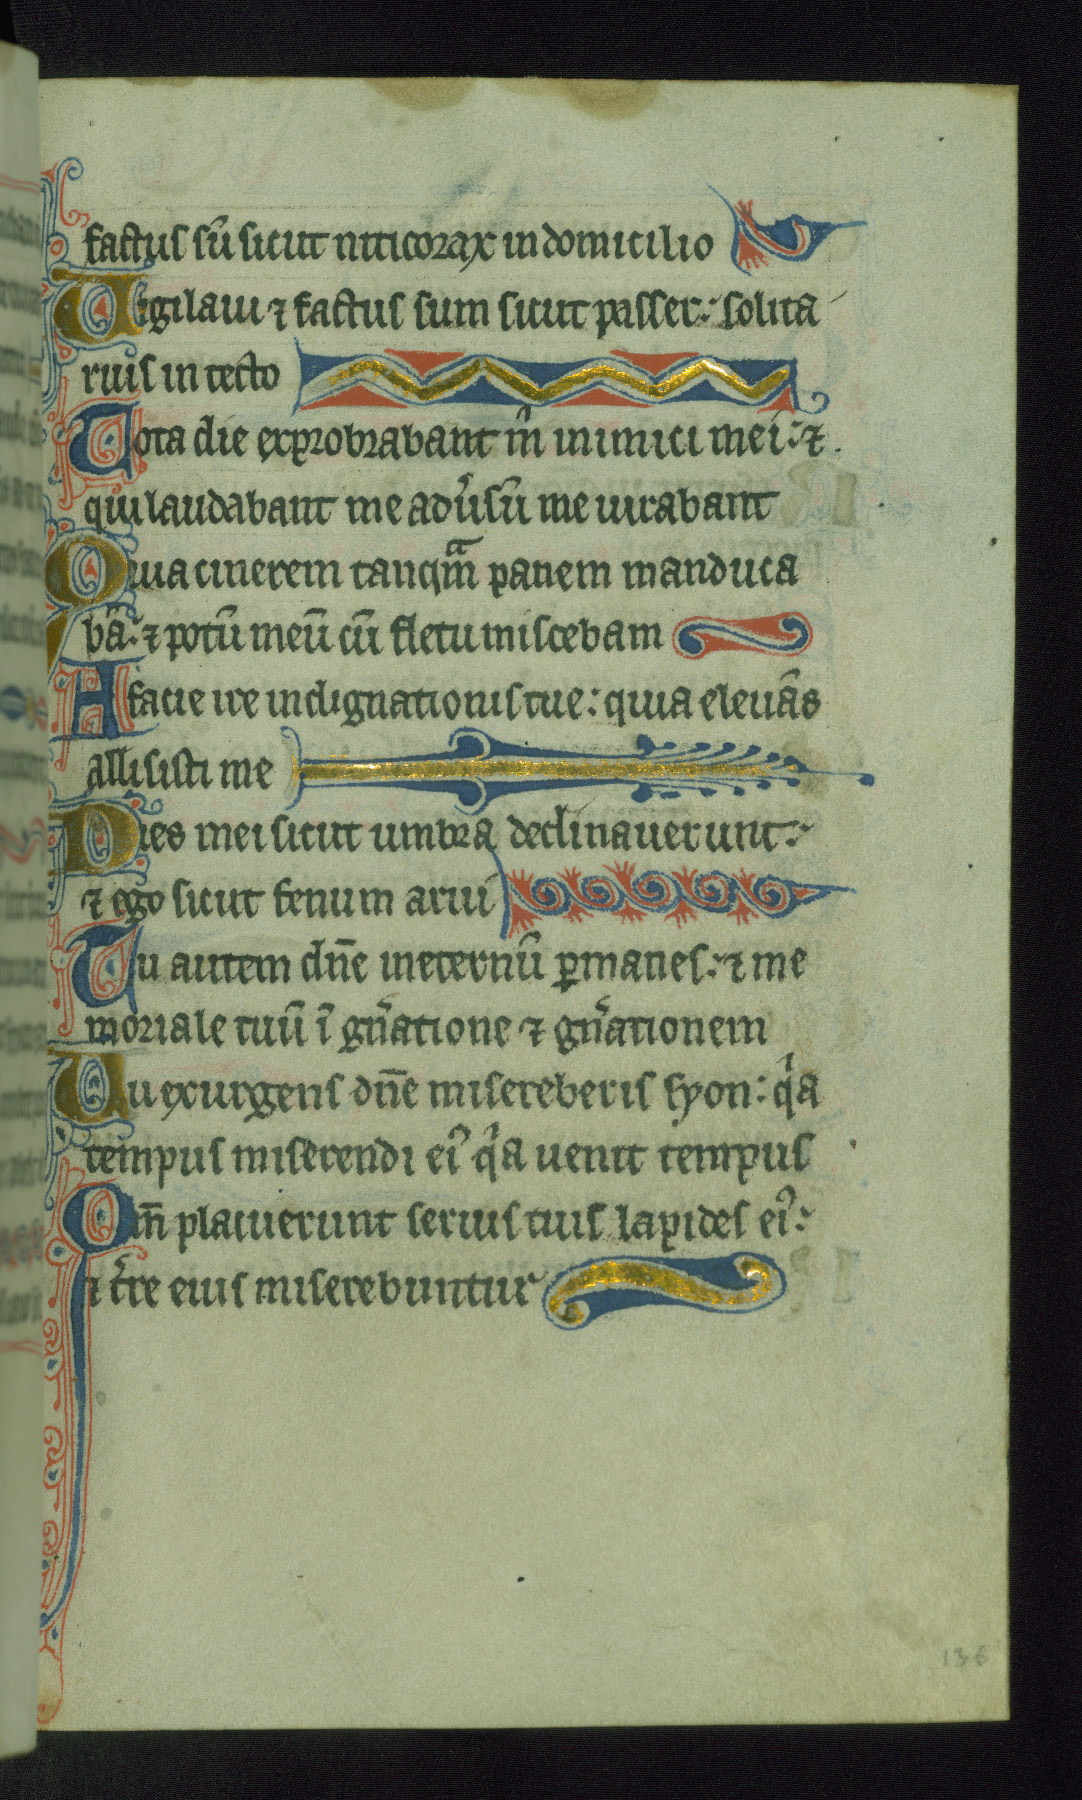 factus sū sicut niticorax in domicilio
Vigilaui ⁊ factus sum sicut passer: solita
rius in tecto
Tota die exprobrabant m̅ inimici mei: ⁊
qui laudabant me adūsū me iurabant
Quia cinerem tanqm̅ panem manduca
bā: ⁊ potū meū cū fletu miscebam
A facie ire indignationis tue: quia eleuās
allisisti me
Dies mei sicut umbra declinauerunt:
⁊ ego sicut fenum arui
Tu autem dn̄e ineternū ꝑmanes: ⁊ me
moriale tuū ī gn̄atione ⁊ gn̄ationem
Tu exurgens dn̄e misereberis syon: qͥa
tempus miserendi eiꝰ qͥa uenit tempus
Qm̄ placuerunt seruis tuis lapides eiꝰ:
⁊ t̄re eius miserebuntur
136